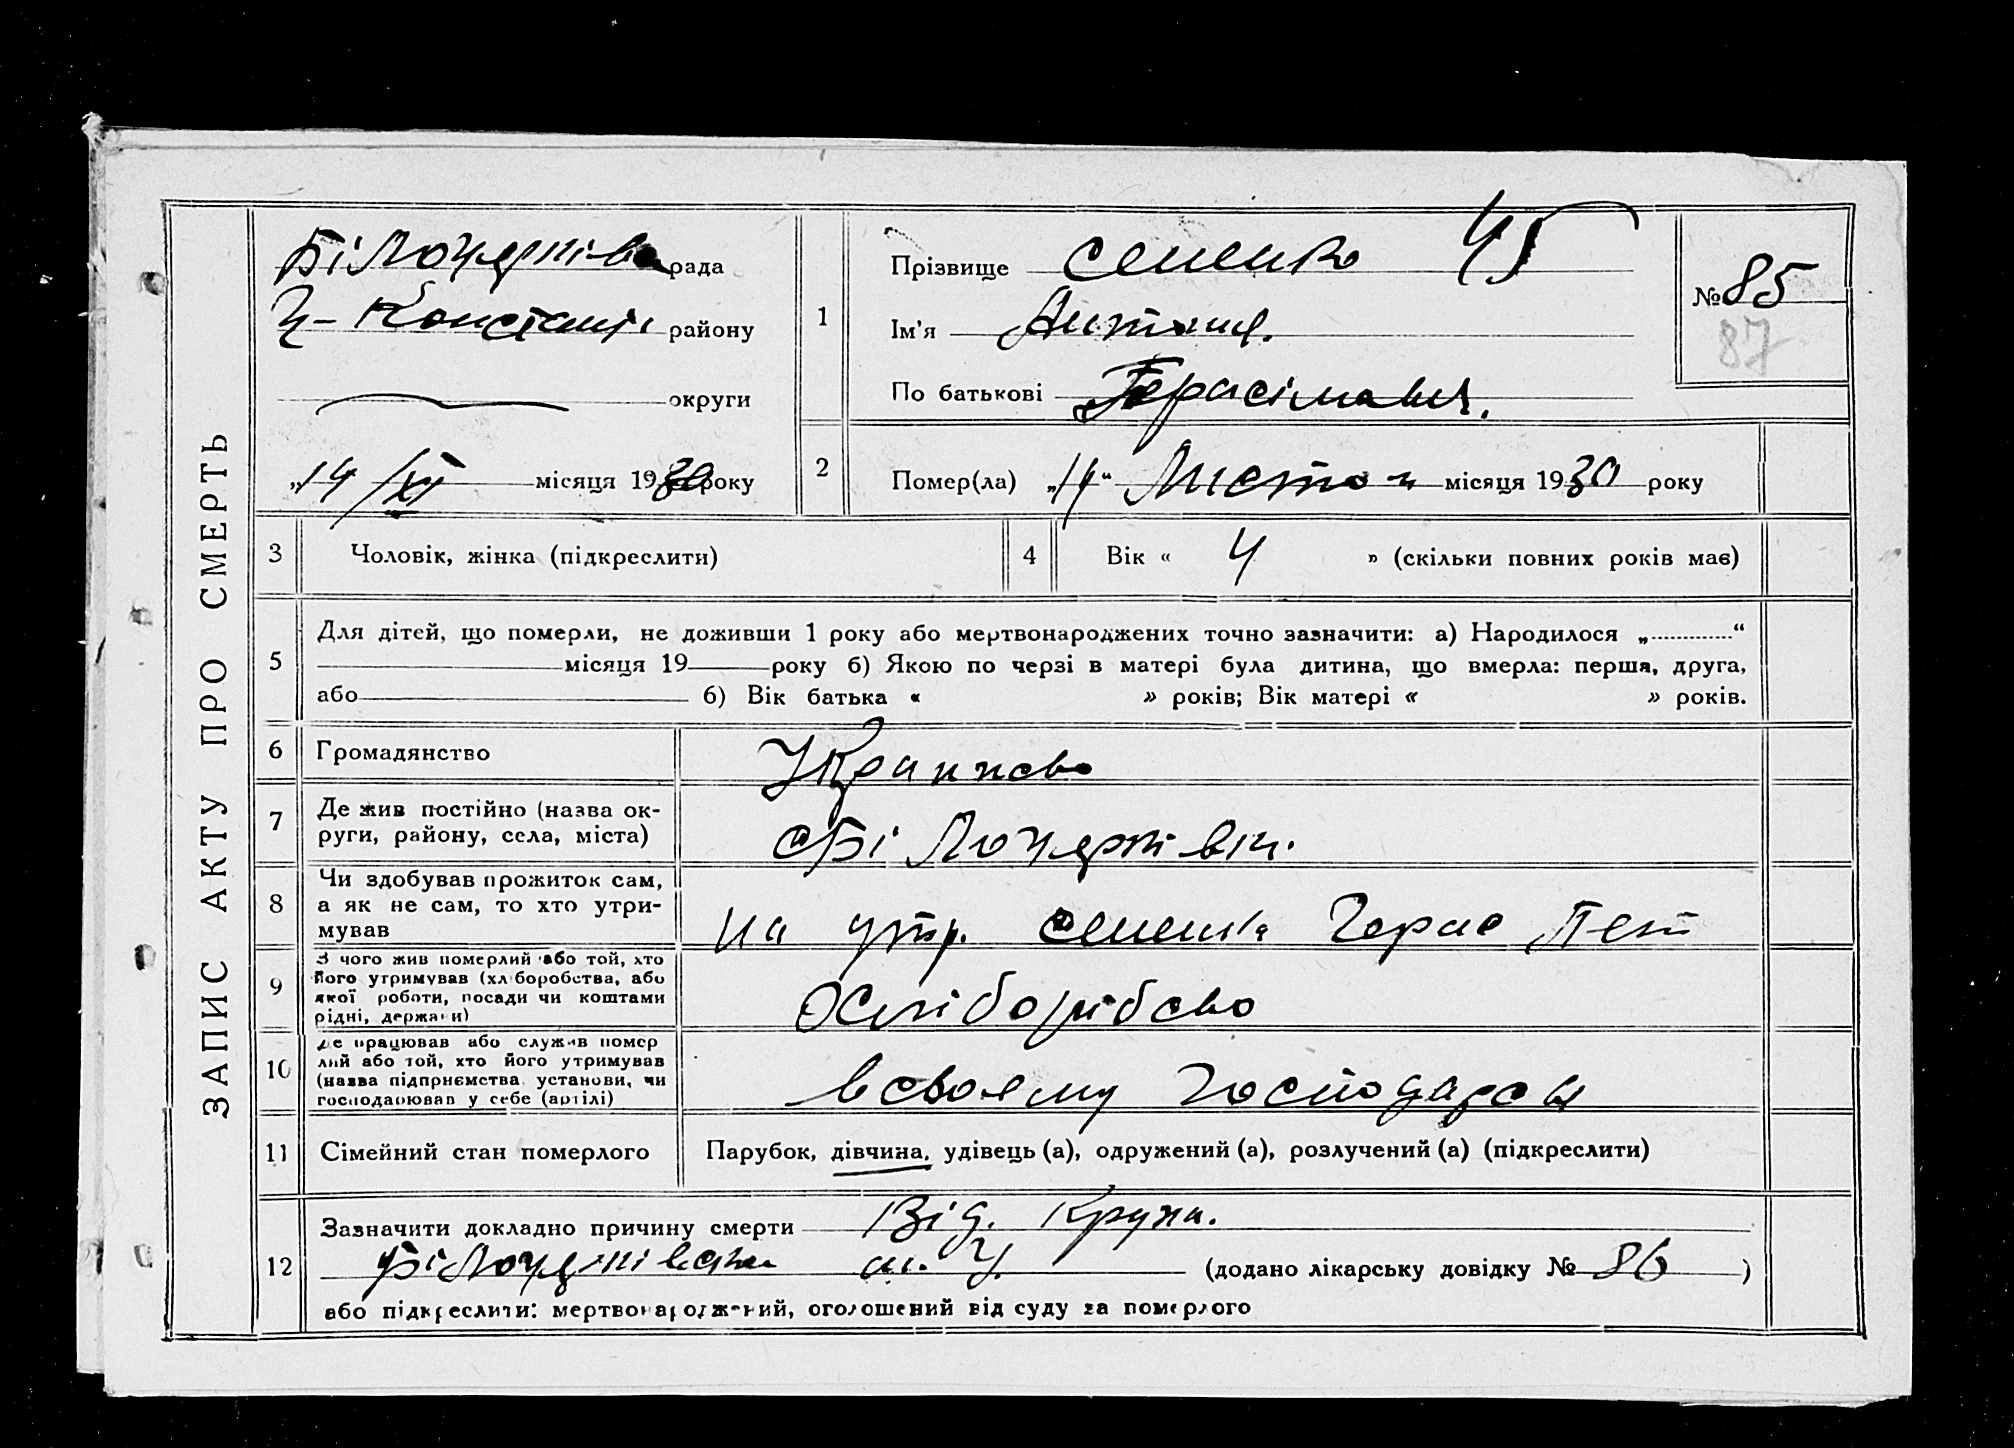 ЗАПИС АКТУ ПРО СМЕРТЬ
рада
Ц-Констант. району
округи
„14/XI місяця 1930 року
1
Прізвище Сененко 45
Ім'я
По батькові Герасімавна.
№ 85
87
2
Помер(ла) „14“ Листоп місяця 1930 року
3 Чоловік, жінка (підкреслити)
4 Вік « 4 » (скільки повних років має)
5
Для дітей, що померли, не доживши 1 року або мертвонароджених точно зазначити: а) Народилося „............“
місяця 19 року б) Якою по черзі в матері була дитина, що вмерла: перша, друга,
або б) Вік батька « » років; Вік матері « » років.
6 Громадянство
7 Де жив постійно (назва ок-
руги, району, села, міста)
8 Чи здобував прожиток сам,
а як не сам, то хто утри-
мував
на утр. Сененка Герас Пет
9 З чого жив померлий або той, хто
його утримував (хліборобства, або
якої роботи, посади чи коштами
рідні, держави)
10 Де працював або служив помер
лий або той, хто його утримував
(назва підприємства, установи, чи
господарював у себе (артілі)
в своему
11 Сімейний стан померлого
Парубок, дівчина, удівець (а), одружений (а), розлучений (а) (підкреслити)
12
Зазначити докладно причину смерти Від. Крупа.
(додано лікарську довідку № 86)
або підкреслити: мертвонароджений, оголошений від суду за померлого